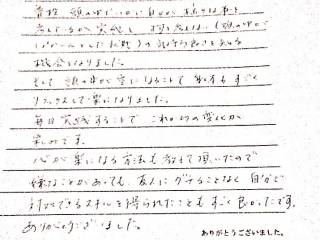 普段 頭の中でいかに自分が様々な事を
考しているか実感し 何も考えない（頭の中が
ぽかーんとした状態）の気持ち良さを知る
機会になりました。
そして 頭の中が空になることで 体もすごく
リラックスして楽になりました。
毎日実践することで これからの変化が
楽しみです。
心が楽になる方法も教えて頂いたので
嫌なことがあっても、友人にグチることなく 自分で
対処できるスキルを得られたこともすごく良かったです。
ありがとうございました。
ありがとうございました。